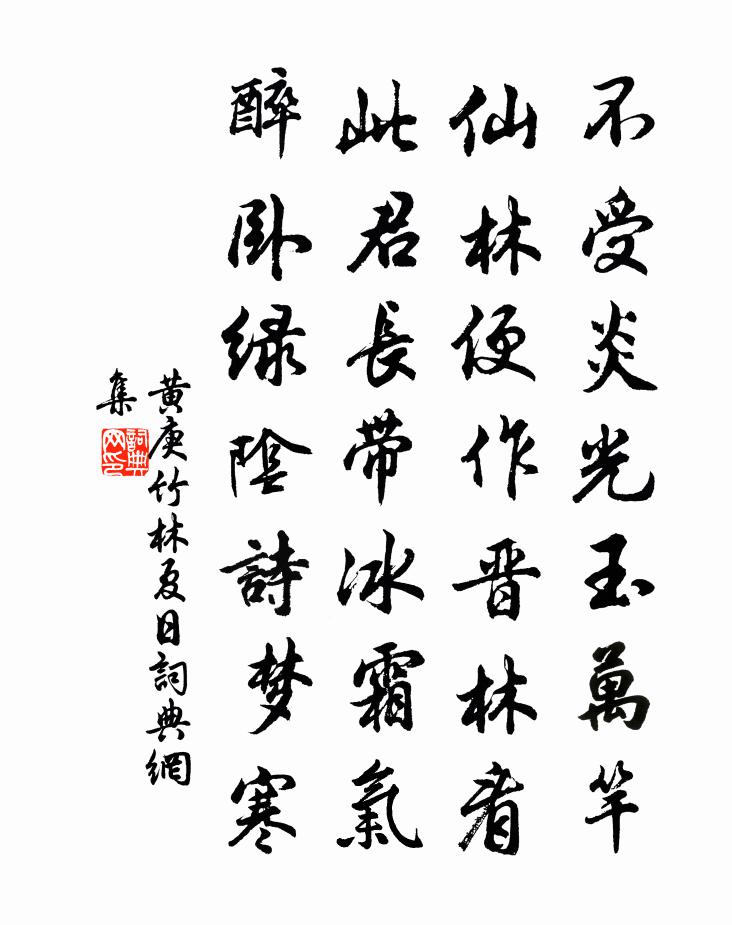 不受炎光玉萬竿
仙林便作晋林看
此君長带冰霜氣
醉卧緑陰詩梦寒
黄庚竹林夏日詞典網
集
詞典
网印